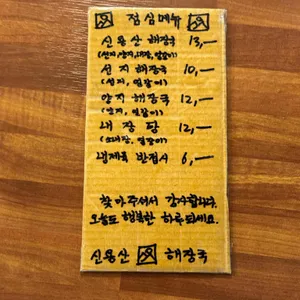 점심메뉴
신용산 해장국 13,—
(선지,양지,내장,얼갈이)
선지 해장국 10,—
(선지, 얼갈이)
양지 해장국 12,—
(양지, 얼갈이)
내장탕 12,—
(소내장, 얼갈이)
냉제육 반접시 6,—
찾아주셔서 감사합니다.
오늘도 행복한 하루 되세요.
신용산 해장국